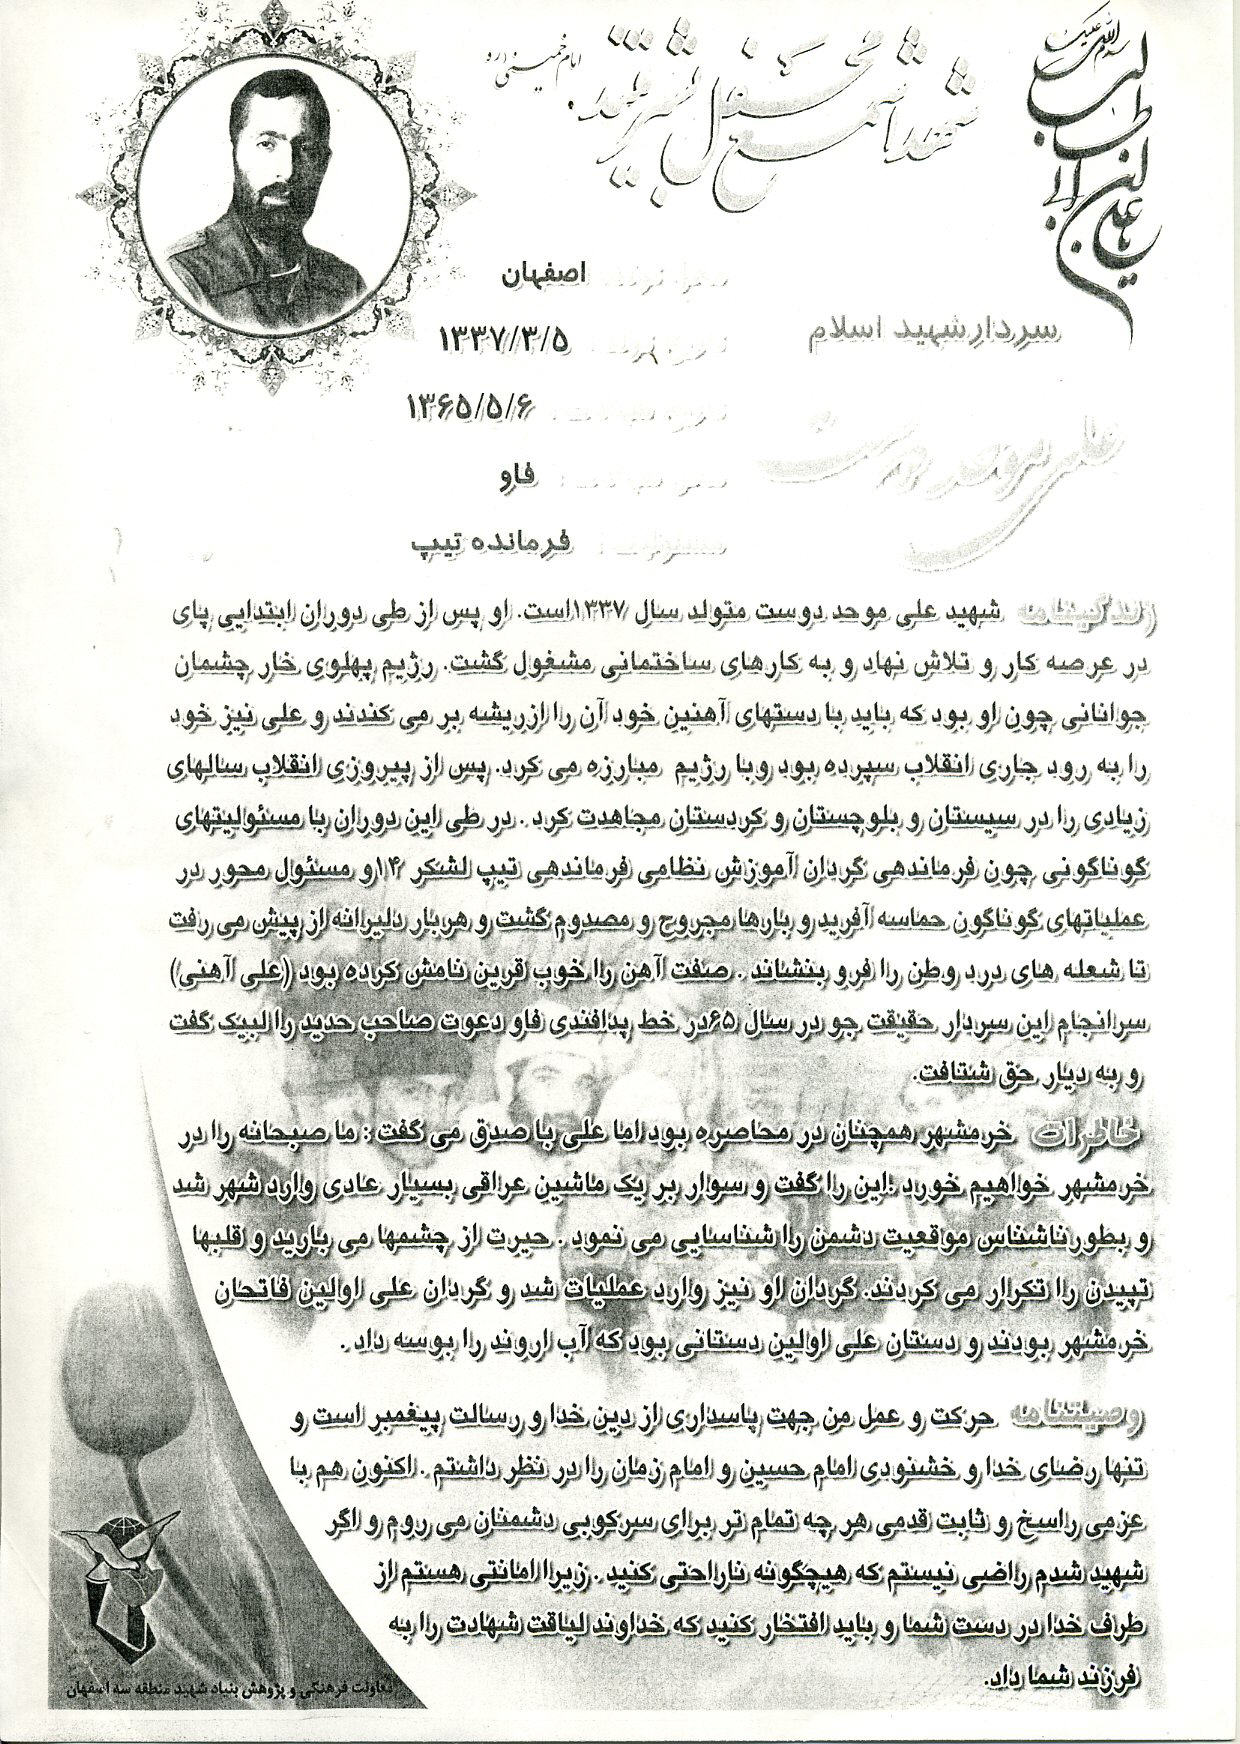 السلام علیک یا علی ابن ابی طالب
شهدا شمع محفل بشریتند.
امام خمینی (ره)
سردار شهید اسلام
علی موحد دوست
محل تولد: اصفهان
تاریخ تولد: ۱۳۳۷/۳/۵
تاریخ شهادت: ۱۳۶۵/۵/۶
محل شهادت: فاو
مسئولیت: فرمانده تیپ
زندگینامه شهید علی موحد دوست متولد سال ۱۳۳۷است. او پس از طی دوران ابتدایی پای
در عرصه کار و تلاش نهاد و به کارهای ساختمانی مشغول گشت. رژیم پهلوی خار چشمان
جوانانی چون او بود که باید با دستهای آهنین خود آن را ازریشه بر می کندند و علی نیز خود
را به رود جاری انقلاب سپرده بود وبا رژیم مبارزه می کرد. پس از پیروزی انقلاب سالهای
زیادی را در سیستان و بلوچستان و کردستان مجاهدت کرد . در طی این دوران با مسئولیتهای
گوناگونی چون فرماندهی گردان آموزش نظامی فرماندهی تیپ لشکر ۱۴و مسئول محور در
عملیاتهای گوناگون حماسه آفرید و بارها مجروح و مصدوم گشت و هربار دلیرانه از پیش می رفت
تا شعله های درد وطن را فرو بنشاند . صنعت آهن را خوب قرین نامش کرده بود (علی آهنی)
سرانجام این سردار حقیقت جو در سال ۶۵در خط پدافندی فاو دعوت صاحب حدید را لبیک گفت
و به دیار حق شتافت.
خاطرات خرمشهر همچنان در محاصره بود اما علی با صدق می گفت : ما صبحانه را در
خرمشهر خواهیم خورد ؛این را گفت و سوار بر یک ماشین عراقی بسیار عادی وارد شهر شد
و بطورناشناس موقعیت دشمن را شناسایی می نمود . حیرت از چشمها می بارید و قلبها
تپیدن را تکرار می کردند. گردان او نیز وارد عملیات شد و گردان علی اولین فاتحان
خرمشهر بودند و دستان علی اولین دستانی بود که آب اروند را بوسه داد .
وصیتنامه حرکت و عمل من جهت پاسداری از دین خدا و رسالت پیغمبر است و
تنها رضای خدا و خشنودی امام حسین و امام زمان را در نظر داشتم . اکنون هم با
عزمی راسخ و ثابت قدمی هر چه تمام تر برای سرکوبی دشمنان می روم و اگر
شهید شدم راضی نیستم که هیچگونه ناراحتی کنید . زیرا امانتی هستم از
طرف خدا در دست شما و باید افتخار کنید که خداوند لیاقت شهادت را به
فرزند شما داد.
معاونت فرهنگی و پژوهش بنیاد شهید منطقه سه اصفهان